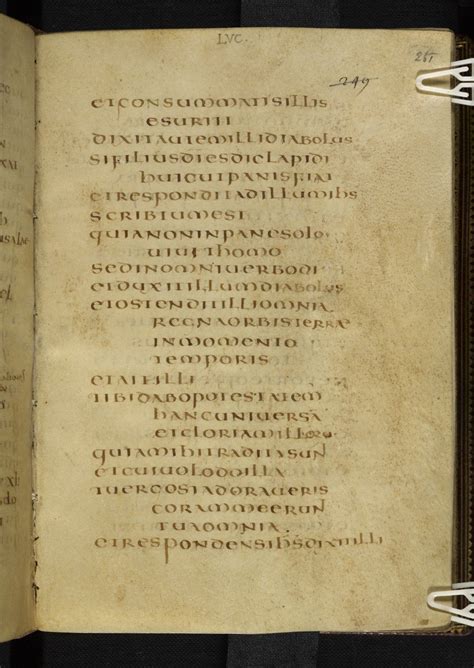 LVC.
261
249
etconsummatisillis
esuriit
dixitautemillidiabolus
sifiliusdiesdiclapidi
huicutpanisfiat
etresponditadillumihs
scribtumest
quianoninpanesolo
uiuithomo
sedinomniuerbodi
etduxitillumdiabolus
etostenditilliomnia
regnaorbisterrae
inmomento
temporis
etaitilli
tibidabopotestatem
hancuniuersa
etgloriamilloru
quiamihitraditasun
etcuiuolodoilla
tuergosiadoraueris
corammeerun
tuaomnia.
etrespondensihsdixitilli